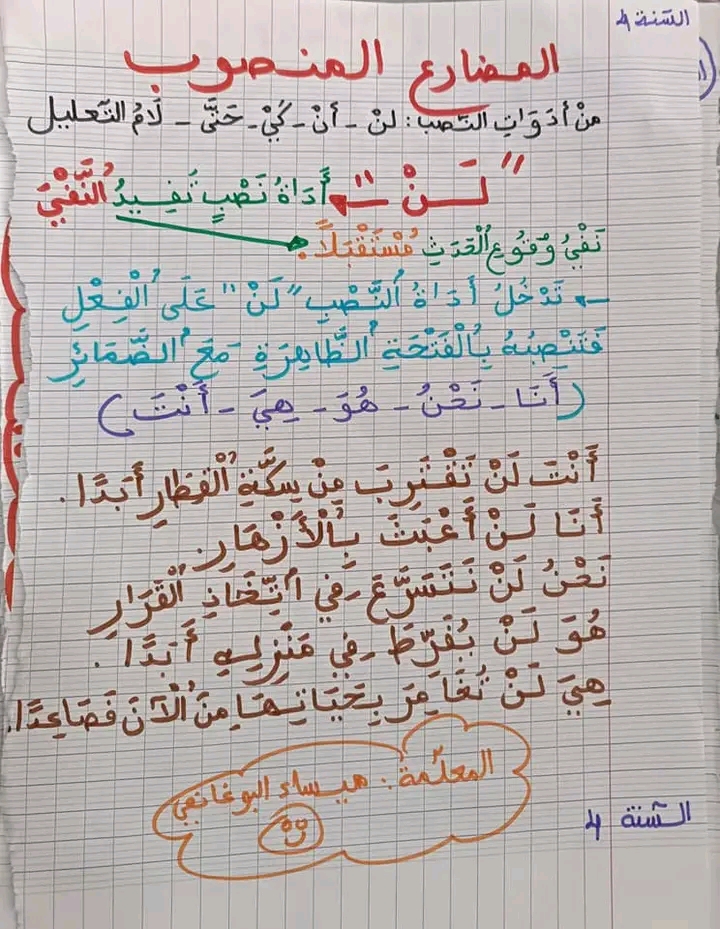 السّنة 4
المضارع المنصوب
مِنْ أَدَوَاتِ النّصب : لنْ - أنْ - كَيْ - حَتَّى - لَامُ التّعليل
" لَنْ " ← أَدَاةُ نَصْبٍ تَفِيدُ النَّفْيَ
نَفْيُ وُقُوعِ الْحَدَثِ مُسْتَقْبَلًا .
← تَدْخُلُ أَدَاةُ النَّصْبِ " لَنْ " عَلَى الْفِعْلِ
فَتَنْصِبُهُ بِالْفَتْحَةِ الظَّاهِرَةِ مَعَ الضَّمَائِرِ
( أَنَا - نَحْنُ - هُوَ - هِيَ - أَنْتَ )
أَنْتَ لَنْ تَقْتَرِبَ مِنْ سِكَّةِ الْقِطَارِ أَبَدًا .
أَنَا لَنْ أَعْبَثَ بِالْأَزْهَارِ .
نَحْنُ لَنْ نَتَسَرَّعَ فِي اتِّخَاذِ الْقَرَارِ
هُوَ لَنْ يُفَرِّطَ فِي مَنْزِلِهِ أَبَدًا .
هِيَ لَنْ تُغَامِرَ بِحَيَاتِهَا مِنَ الْآنَ فَصَاعِدًا .
المعلّمة : ميساء البوغانمي
السّنة 4